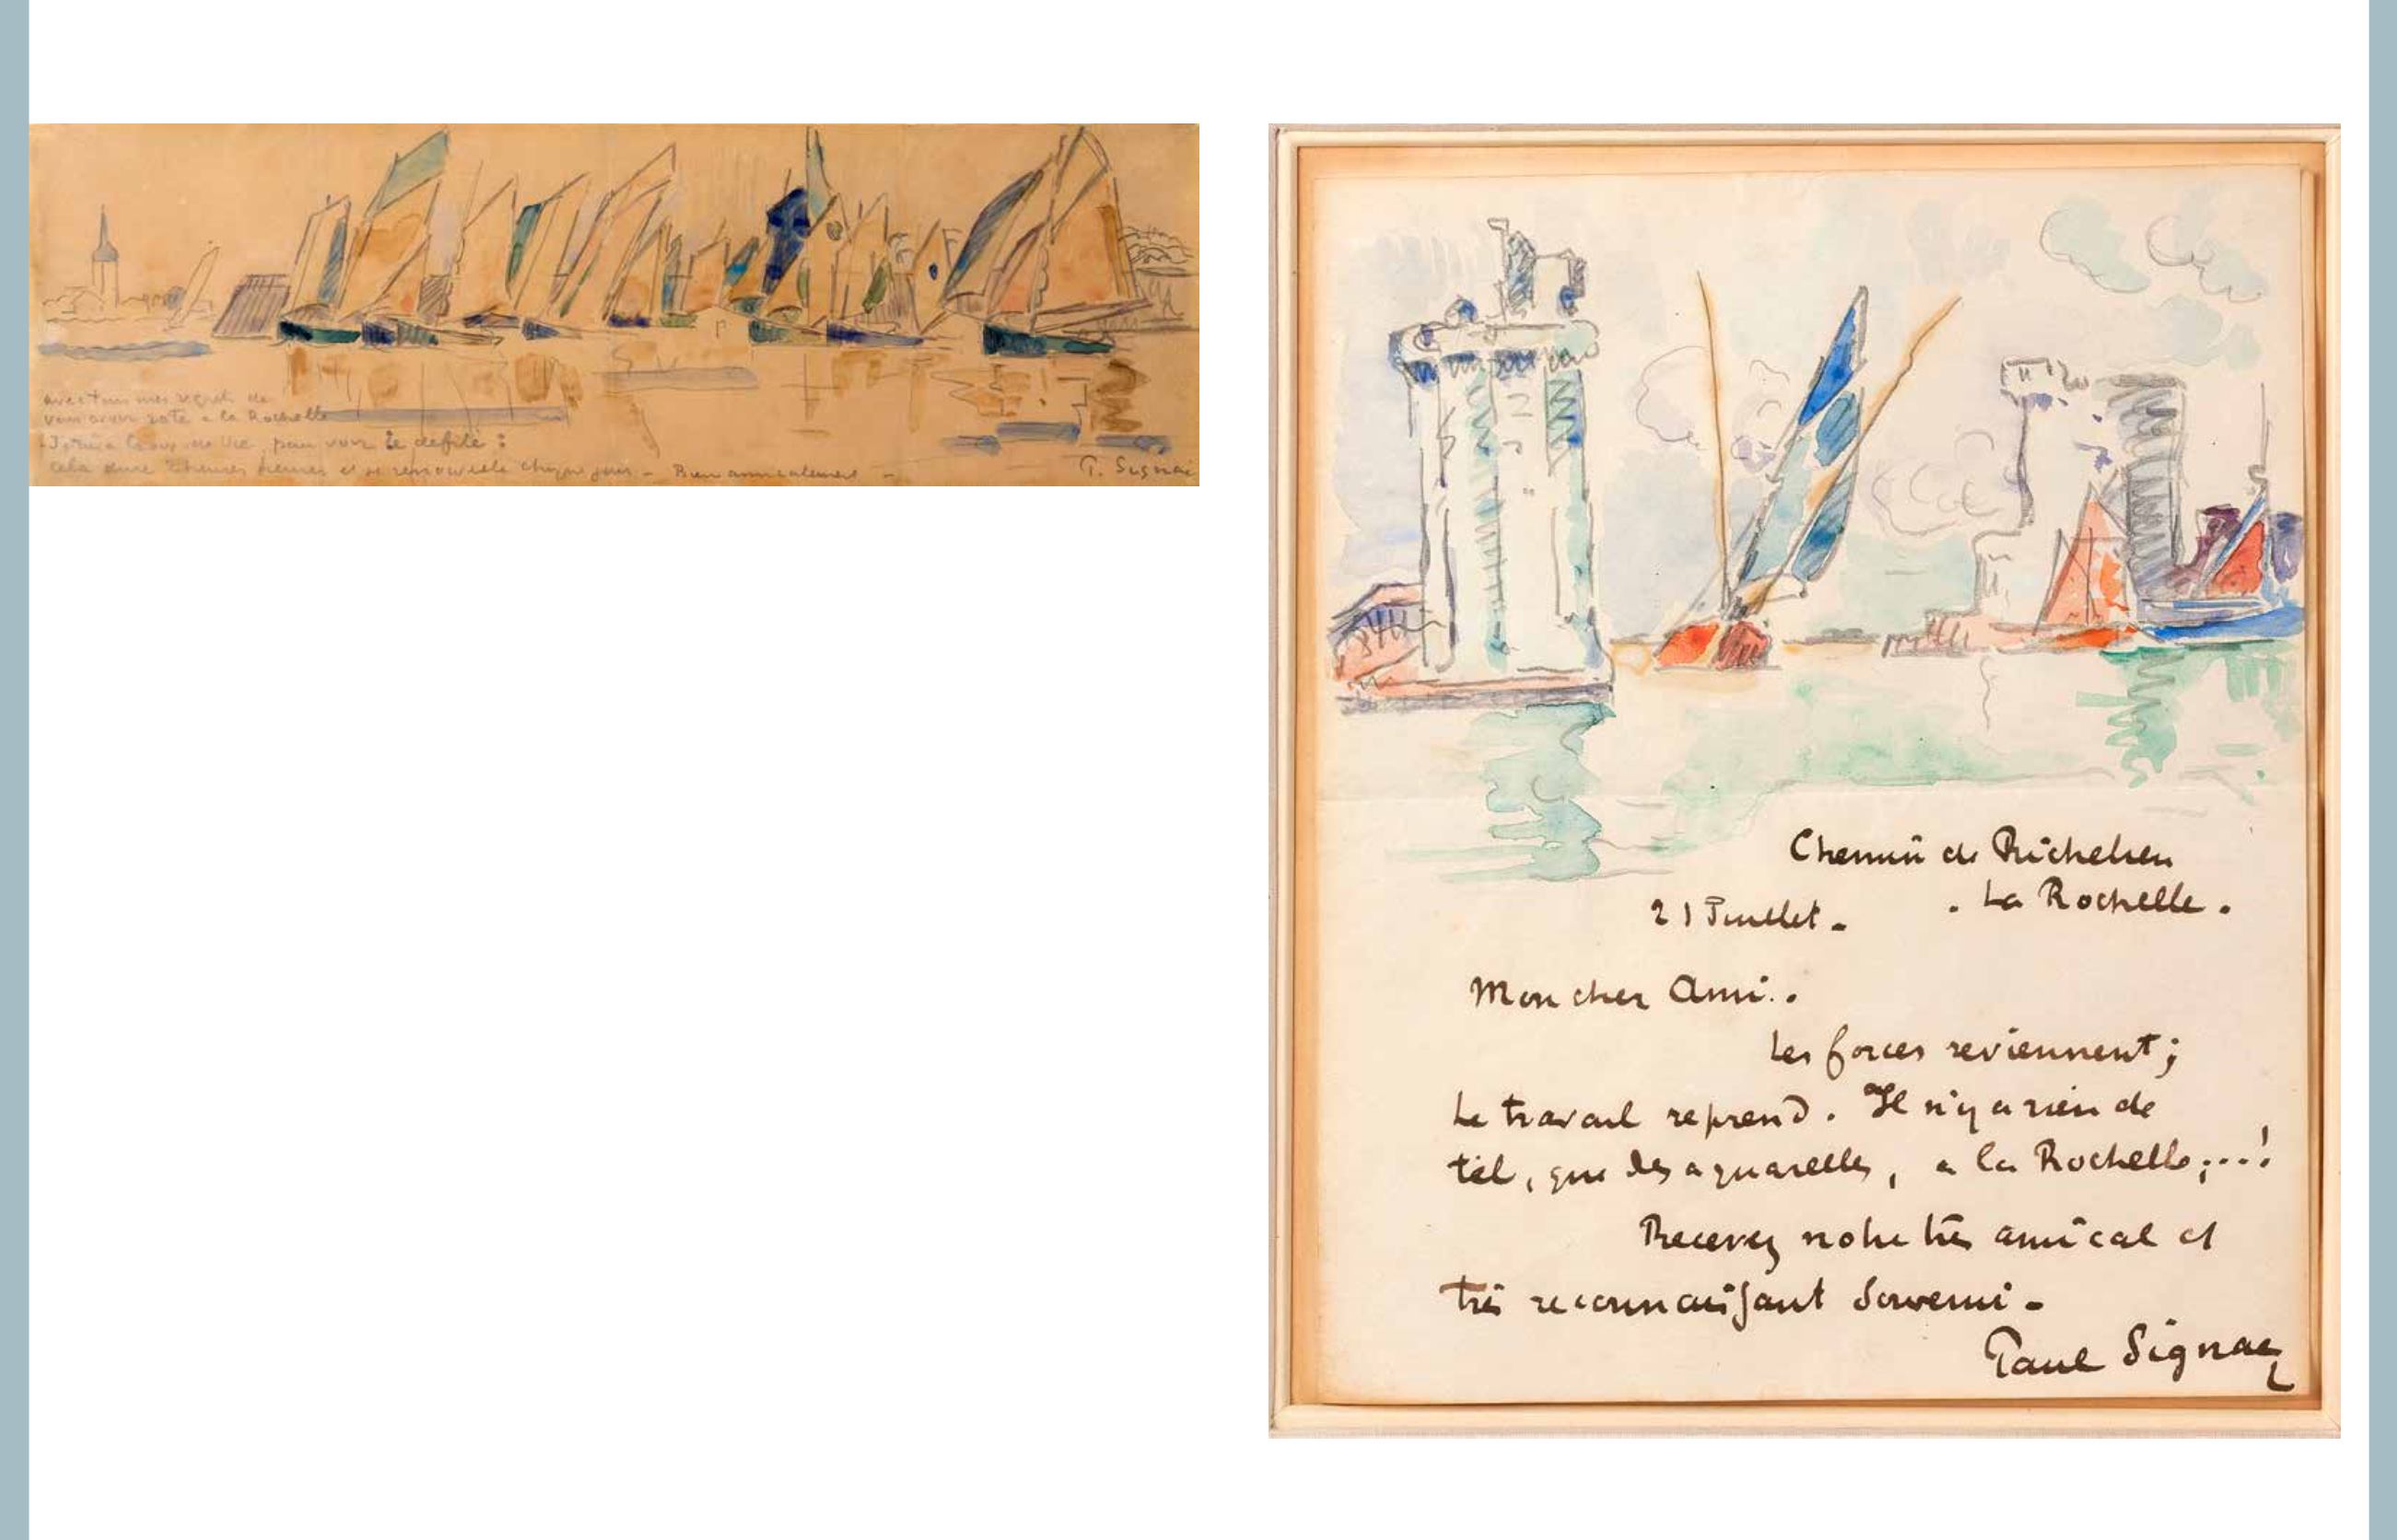 avec tous mes regrets de
vous avoir raté a la Rochelle
la vie, pour voir le défilé :
cela dure 2 heures et se renouvelle chaque jour. – Bien amicalement –
P. Signac
Chemin de Richelieu
. La Rochelle .
21 Juillet –
Mon cher Ami .
Les forces reviennent ;
Le travail reprend . Il n'y a rien de
tel, que des aquarelles, a la Rochelle;...!
Recevez notre très amical et
très reconnaissant Souvenir –
Paul Signac